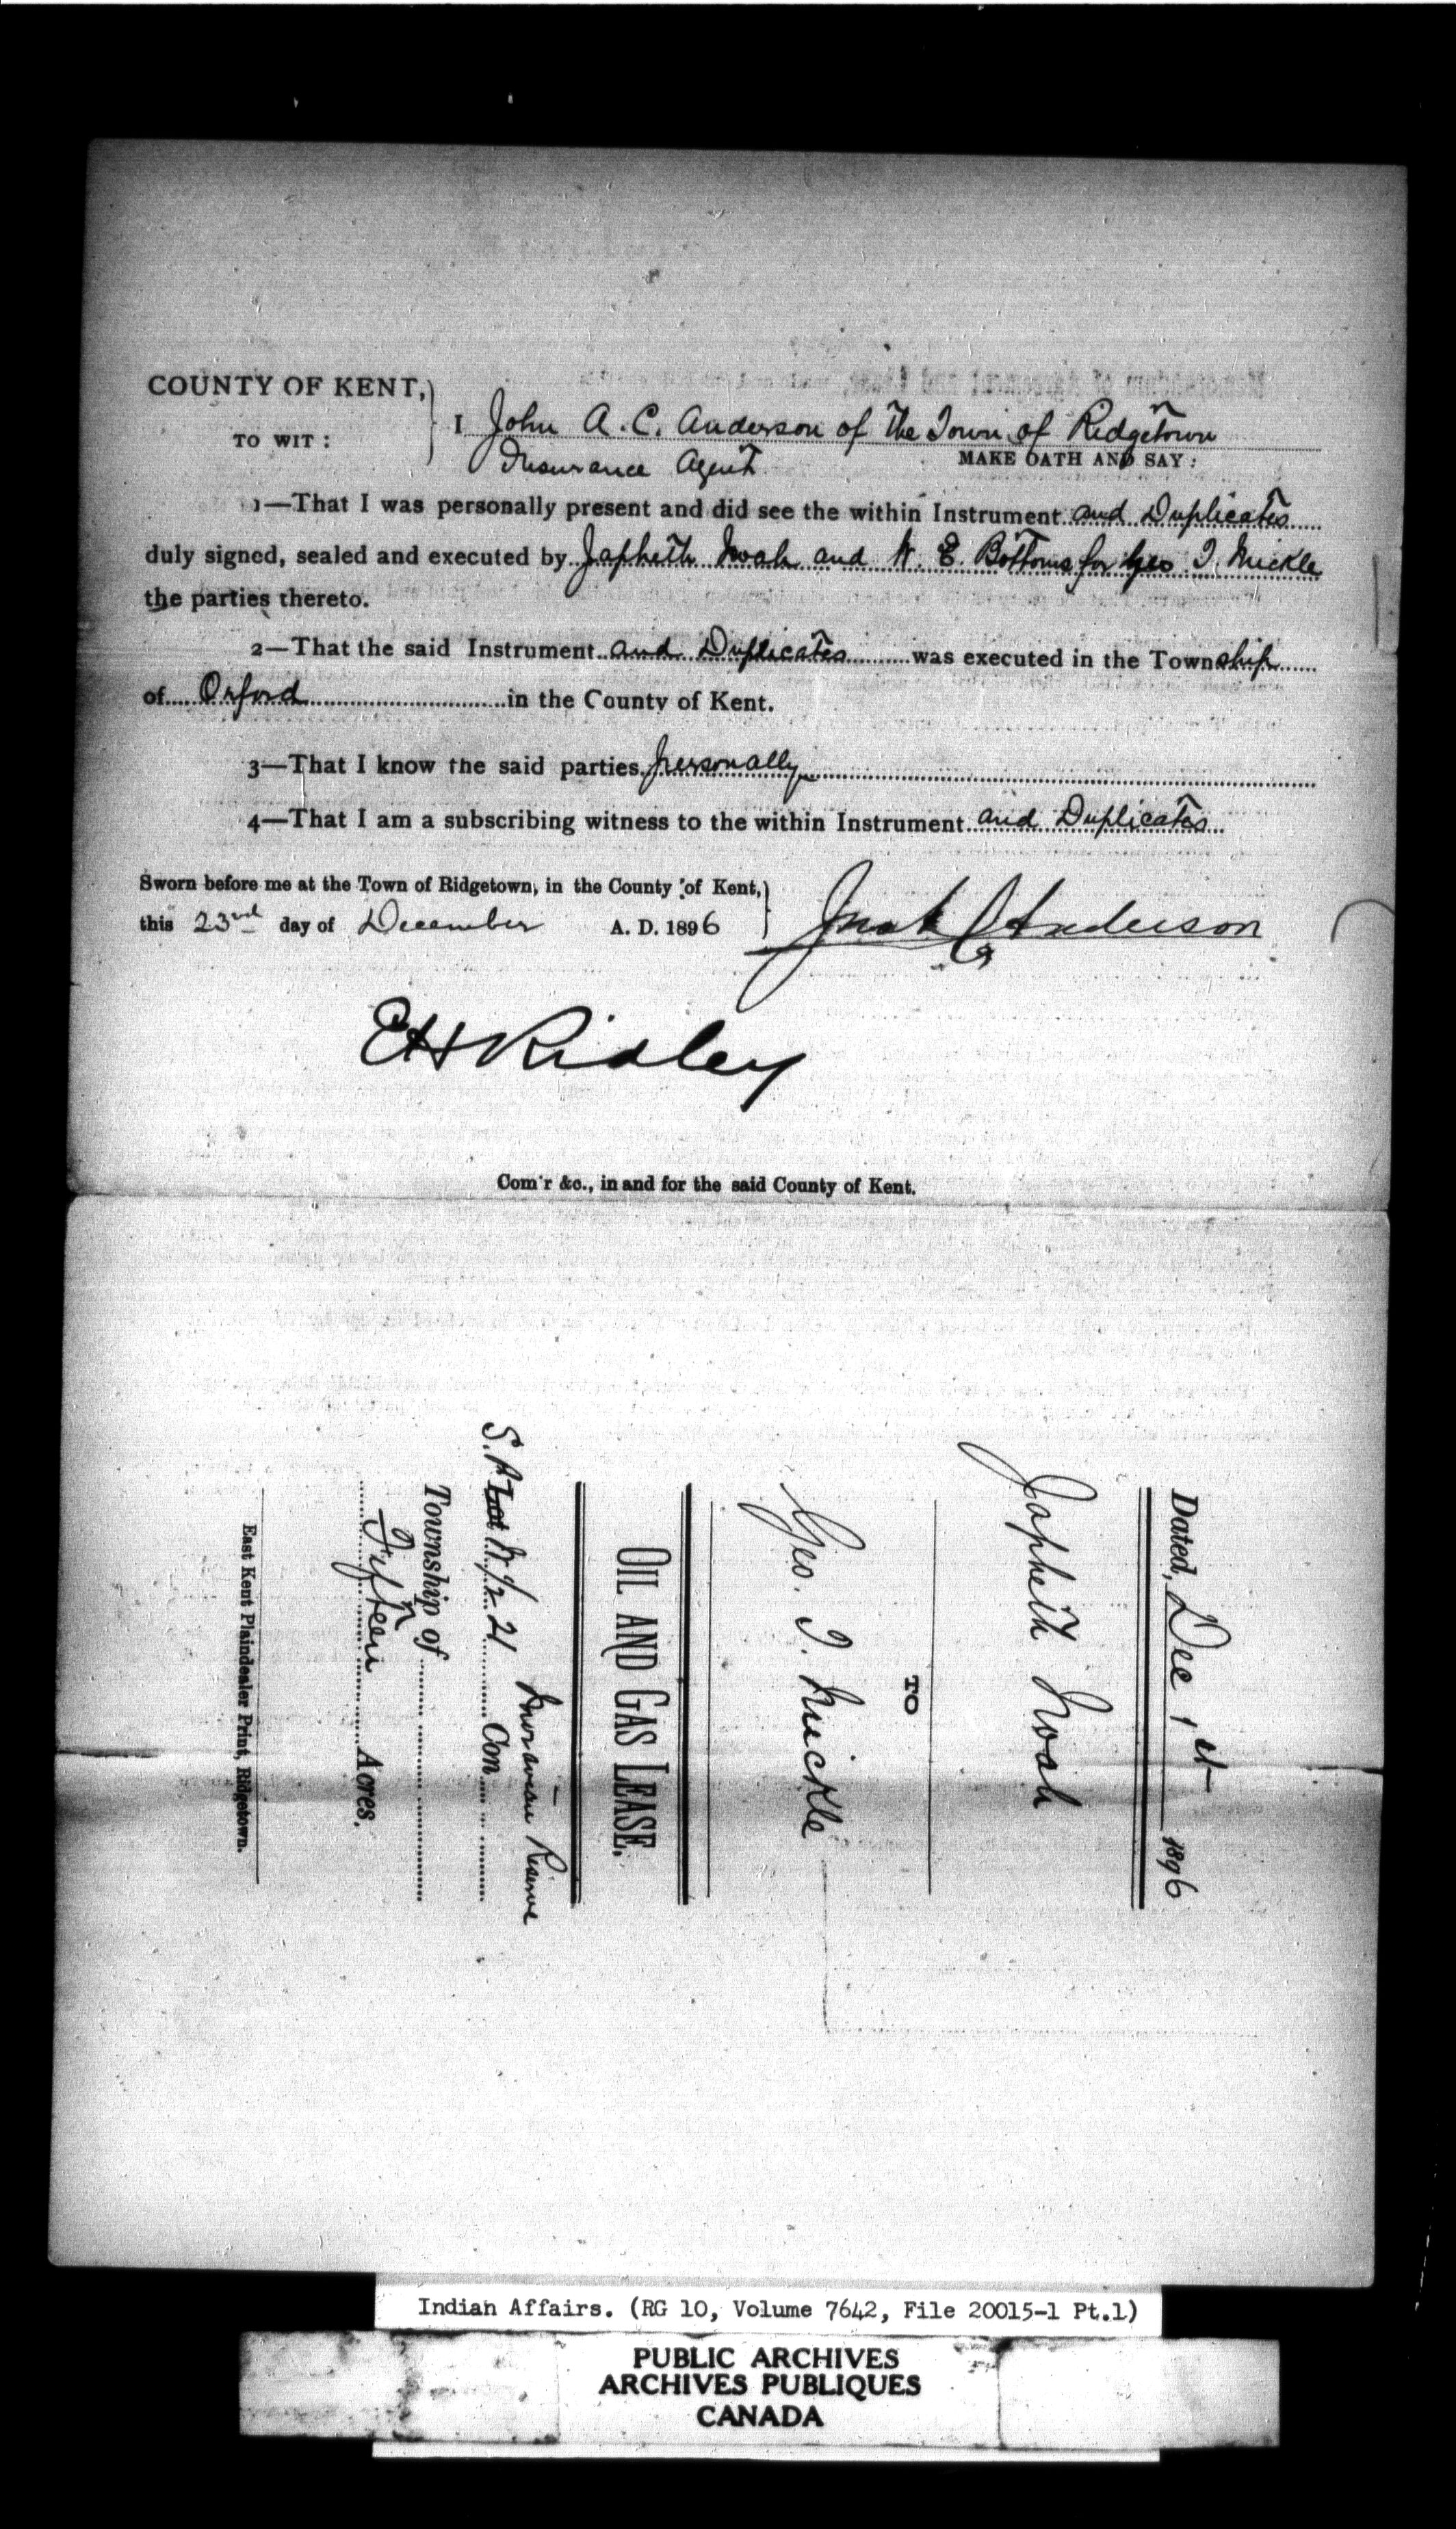 COUNTY OF KENT,
TO WIT :
I John A. C. Anderson of the Town of Ridgetown
Insurance Agent MAKE OATH AND SAY :
1—That I was personally present and did see the within Instrument and Duplicates
duly signed, sealed and executed by Japheth Noah and W. E. Bottoms for Geo I. Mickle
the parties thereto.
2—That the said Instrument and Duplicates was executed in the Township
of Orford in the County of Kent.
3—That I know the said parties personally
4—That I am a subscribing witness to the within Instrument and Duplicates
Sworn before me at the Town of Ridgetown, in the County of Kent,
this 23rd day of December A. D. 1896
Jno A C Anderson
E H Ridley
Com'r &c., in and for the said County of Kent.
Dated, Dec 1st 1896
Japheth Noah
TO
Geo. I. Mickle
OIL AND GAS LEASE.
Moravian Reserve
S. P. Lot N 1/2 21 Con
Township of
Fifteen Acres.
East Kent Plaindealer Print, Ridgetown.
Indian Affairs. (RG 10, Volume 7642, File 20015-1 Pt.1)
PUBLIC ARCHIVES
ARCHIVES PUBLIQUES
CANADA